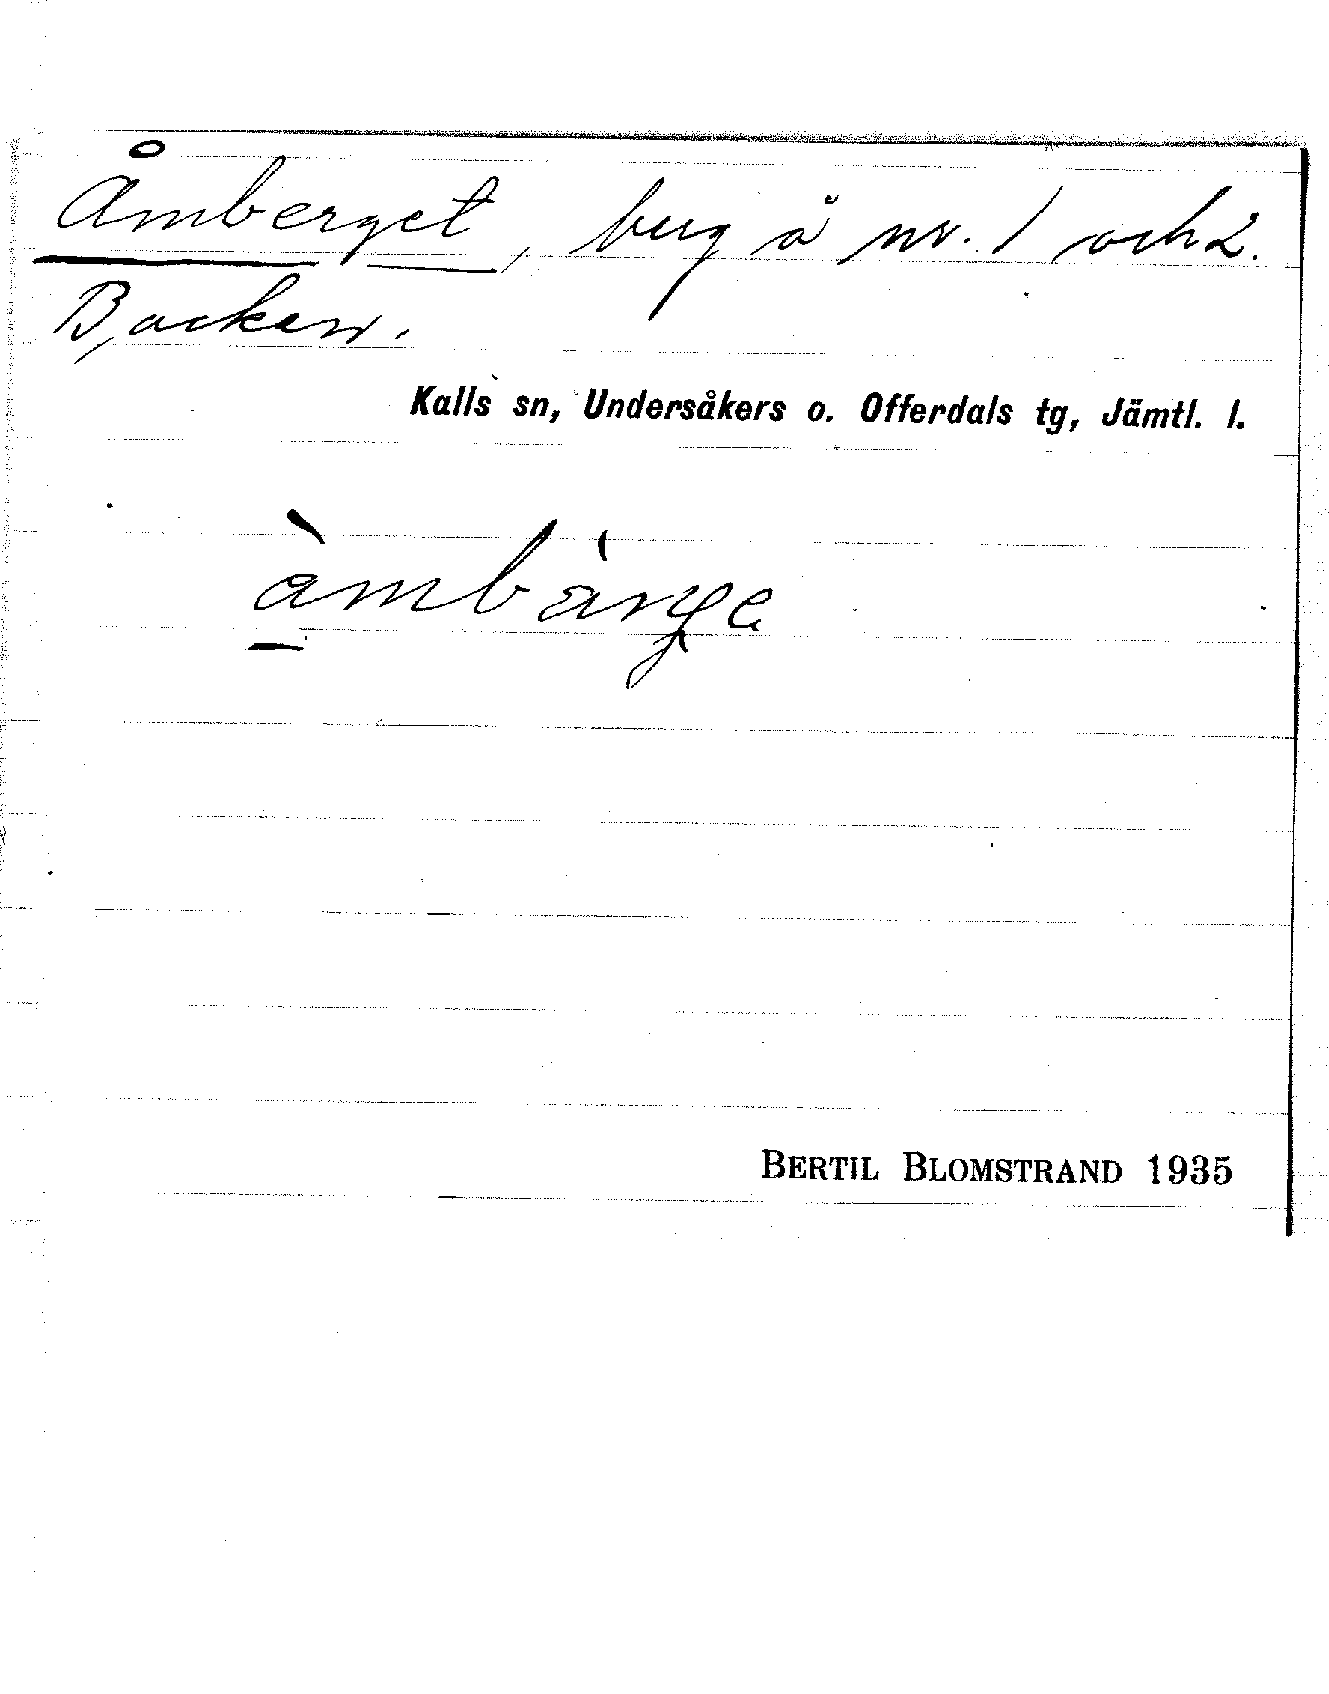 Åmberget, berg å nr. 1 och 2.
Backen.
Kalls sn, Undersåkers o. Offerdals tg, Jämtl. l.
BERTIL BLOMSTRAND 1935